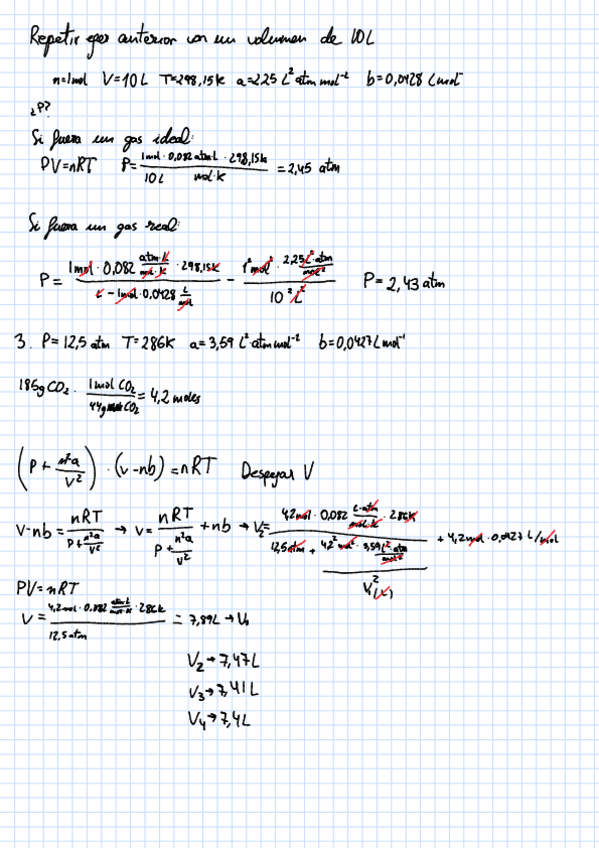 Repetir ejer anterior con un volumen de 10L
n=1mol V=10L T=298,15k a=2,25 L² atm mol⁻² b=0,0428 L mol⁻
¿P?
Si fuera un gas ideal:
PV=nRT P= (1mol · 0,082 atm·L · 298,15k) / (10L mol·K) = 2,45 atm
Si fuera un gas real:
P= (1mol · 0,082 atm·L/mol·k · 298,15k) / (L - 1mol · 0,0428 L/mol) - (1² mol² · 2,25L²·atm/mol²) / (10² L²) P= 2,43 atm
3. P= 12,5 atm T=286K a=3,59 L² atm mol⁻² b=0,0427 L mol⁻¹
185g CO₂ · 1mol CO₂ / 44g CO₂ = 4,2 moles
(P + n²a/V²) · (V-nb) = nRT Despejar V
V-nb = nRT / (P + n²a/V²) → V= nRT / (P + n²a/V²) + nb → V₂= (4,2mol · 0,082 L·atm/mol·k · 286K) / (12,5atm + (4,2² mol² · 3,59 L²·atm/mol²) / V₁²(L²)) + 4,2mol · 0,0427 L/mol
PV=nRT
V= (4,2mol · 0,082 atm·L/mol·K · 286k) / 12,5atm = 7,89L → V₁
V₂→7,47L
V₃→7,41L
V₄→7,4L